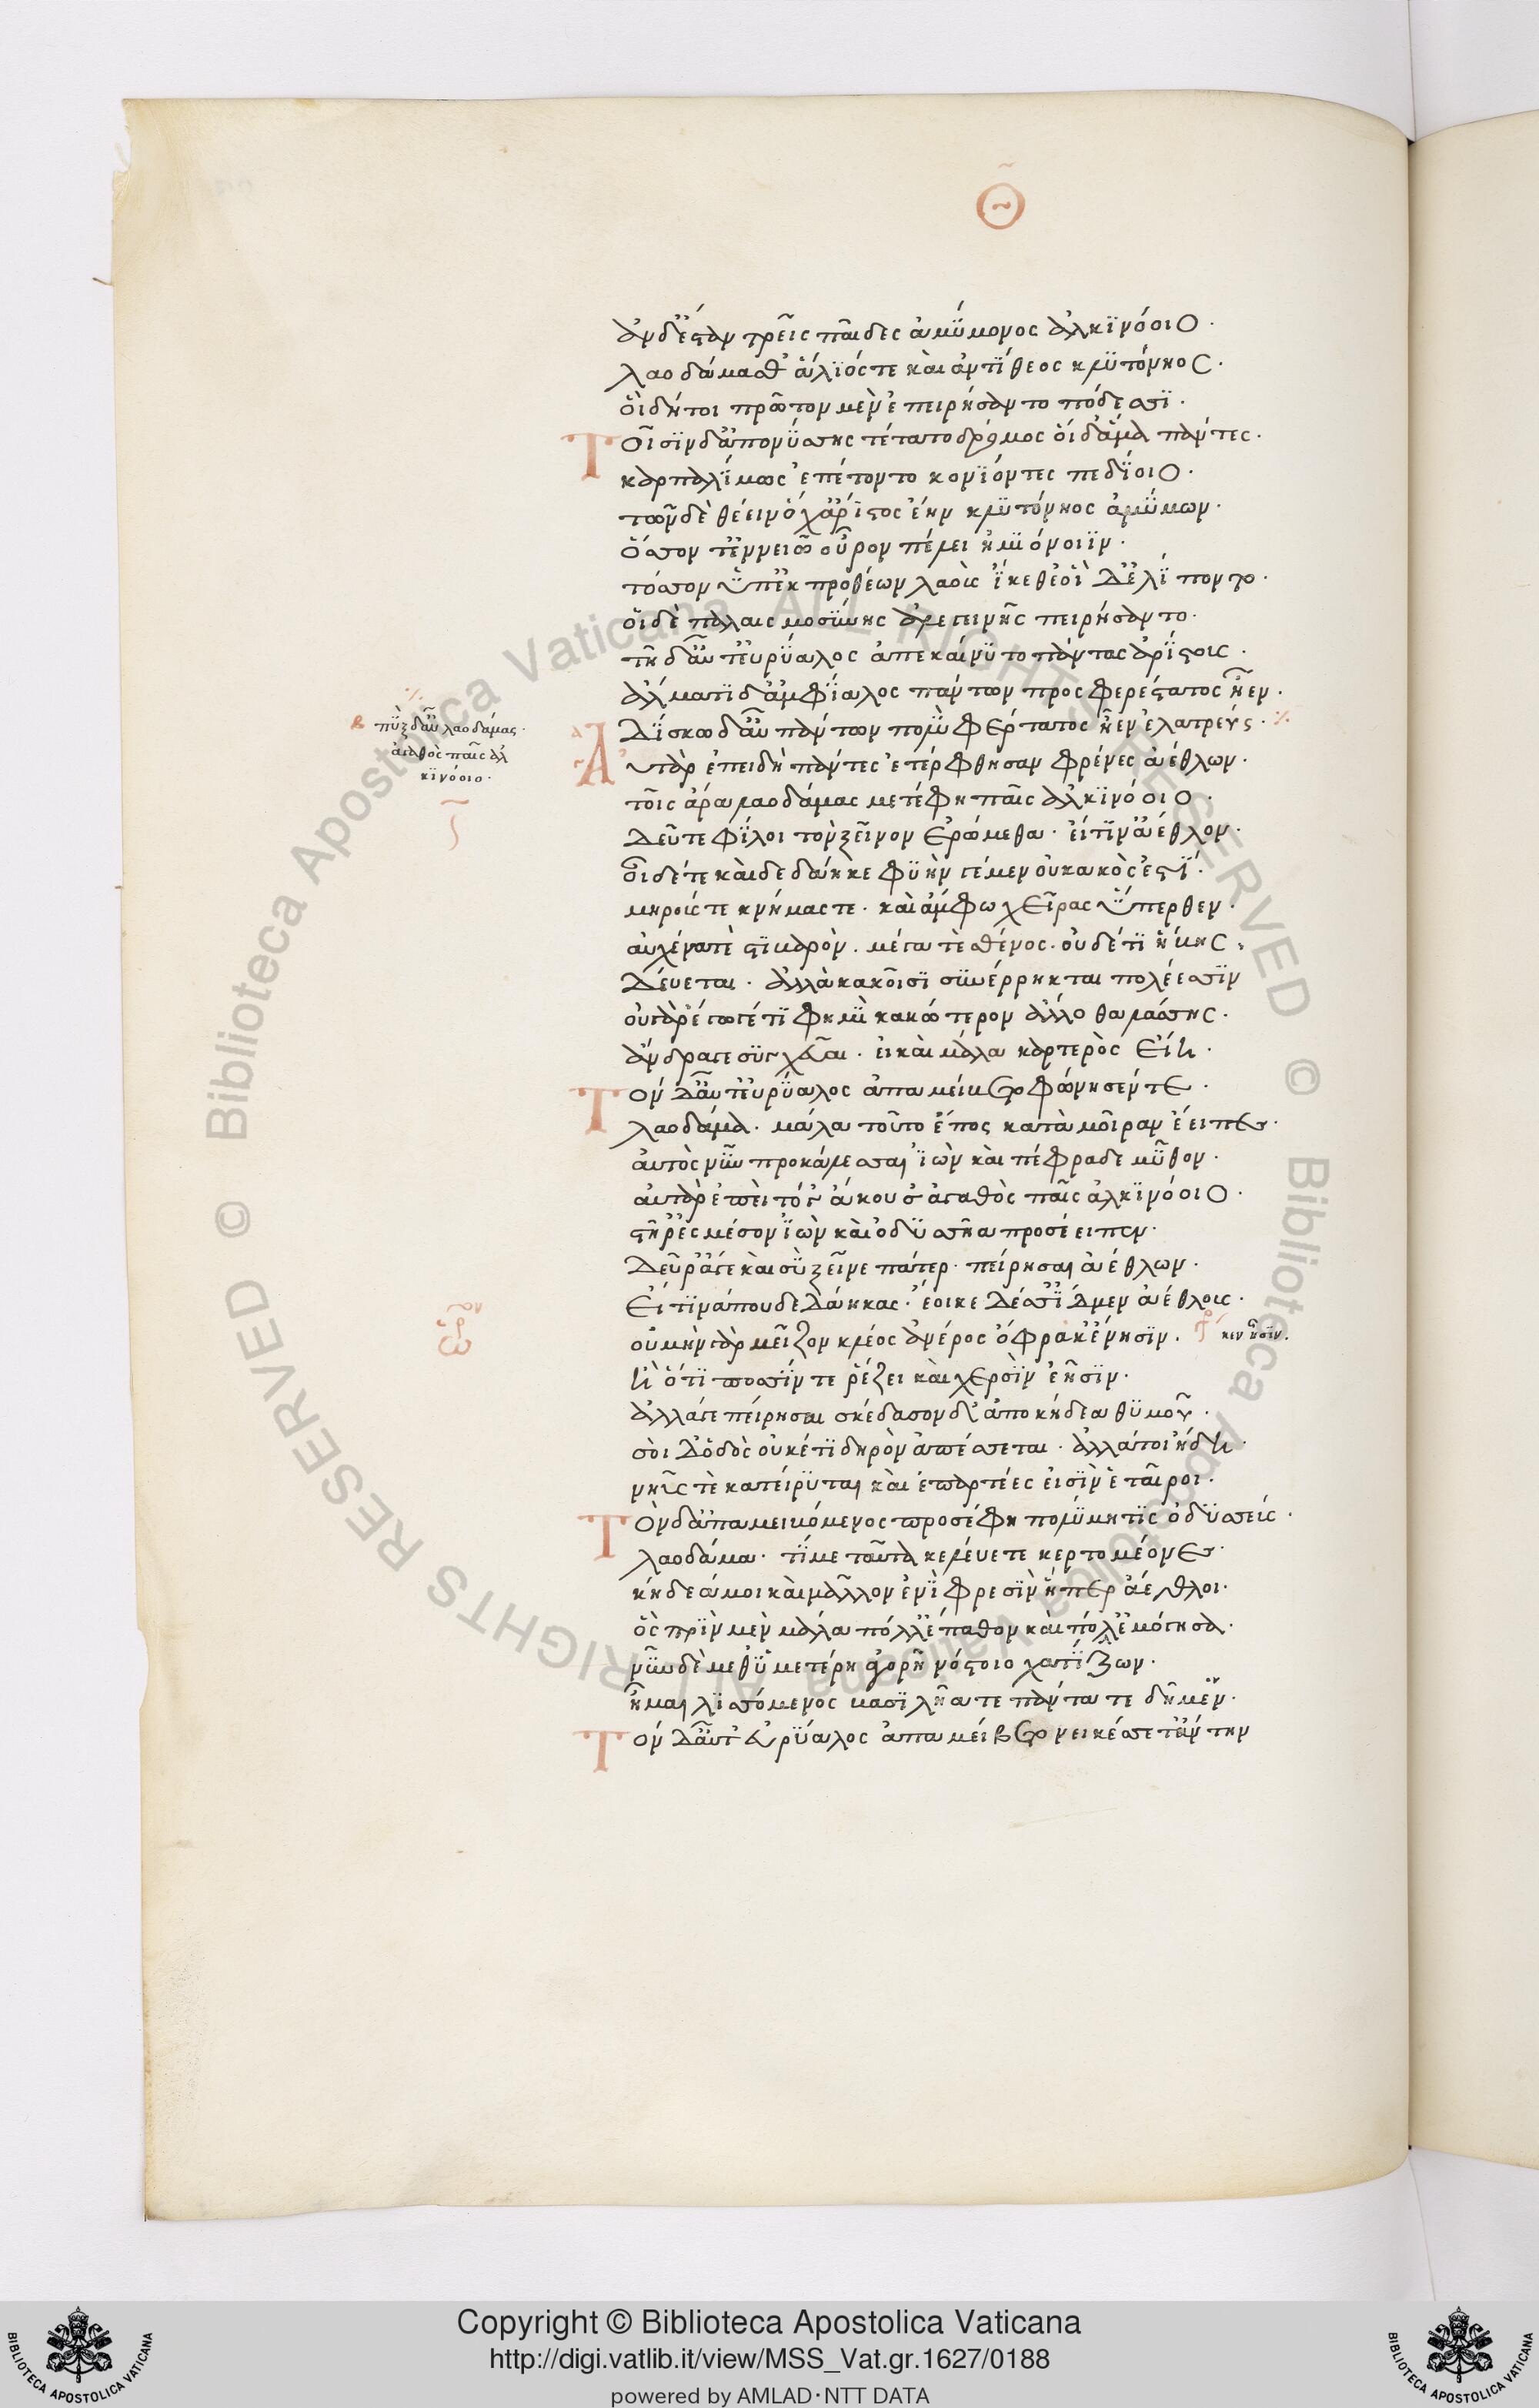 Θ
ἂν δ' ἔσταν τρεῖς παῖδες ἀμύμονος ἀλκινόοιο·
λαοδάμασθ' ἅλιός τε καὶ ἀντίθεος κλυτόνηος·
οἱ δή τοι πρῶτον μὲν ἐπειρήσαντο πόδεσσι·
Τοῖσιν δ' ἀπο νύσσης τέτατο δρόμος οἱ δ' ἅμα πάντες·
καρπαλίμως ἐπέτοντο κονίοντες πεδίοιο·
τῶν δὲ θέειν ὄχ' ἄριστος ἔην κλυτόνηος ἀμύμων·
ὅσσον τ' ἐν νειῶ οὖρον πέλει ἡμιόνοιιν·
τόσσον ὑπ' ἐκ προθέων λαοὺς ἵκεθ' οἱ δ' ἐλίποντο·
οἱ δὲ παλαισμοσύνης ἀλεγεινῆς πειρήσαντο·
τῆ δ' αὖτ' εὐρύαλος ἀπεκαίνυτο πάντας ἀρίστους·
ἅλματι δ' ἀμφίαλος πάντων προφερέστατος ἦεν·
α Δίσκω δ' αὖ πάντων πολὺ φέρτατος ἦεν ἐλατρεύς·
β πὺξ δ' αὖ λαοδάμας·
ἀγαθὸς παῖς ἀλ
κινόοιο·
γ Αὐτὰρ ἐπειδὴ πάντες ἐτέρφθησαν φρένες ἀέθλων·
τοῖς ἄρα λαοδάμας μετέφη παῖς ἀλκινόοιο·
Δεῦτε φίλοι τὸν ξεῖνον ἐρώμεθα· εἴ τιν' ἄεθλον·
οἶδέ τε καὶ δεδάηκε φυήν γε μὲν οὐ κακός ἐστί·
μηρούς τε κνήμας τε· καὶ ἄμφω χεῖρας ὕπερθεν·
αὐχένα τὲ στιβαρὸν· μέγα τὲ σθένος· οὐδέ τι ἥβης·
Δεύεται· ἀλλὰ κακοῖσι συνέρρηκται πολέεσσιν
οὐ γὰρ ἔγωγέ τι φημὶ κακώτερον ἄλλο θαλάσσης·
ἄνδρα γε συγχεῦαι· εἰ καὶ μάλα καρτερὸς εἴη·
Τὸν δ' αὖτ' εὐρύαλος ἀπαμείβετο φώνησέν τε·
λαοδάμα· μάλα τοῦτο ἔπος κατὰ μοῖραν ἔειπες·
αὐτὸς νῦν προκάλεσσαι ἰὼν καὶ πέφραδε μῦθον·
αὐτὰρ ἐπεὶ τό γ' ἄκουσ' ἀγαθὸς παῖς ἀλκινόοιο·
στῆ ῥ' ἐς μέσον ἰὼν καὶ ὀδυσσῆα προσέειπεν·
Δεῦρ' ἄγε καὶ σὺ ξεῖνε πάτερ· πείρησαι ἀέθλων·
Εἴ τινά που δεδάηκας· ἔοικε δέ σ' ἴδμεν ἀέθλους·
οὐ μὴν γὰρ μεῖζον κλέος ἀνέρος ὄφρα κ' ἔνησιν· κεν ἦσιν·
ἢ ὅ τι ποσσίν τε ῥέζει καὶ χερσὶν ἑῆσιν·
ἀλλ' ἄγε πείρησαι σκέδασον δ' ἀπο κήδεα θυμοῦ·
σοὶ δ' ὁδὸς οὐκέτι δηρὸν ἀπέσσεται· ἀλλά τοι ἤδη·
νηῦς τὲ κατείρυται καὶ ἐπαρτέες εἰσὶν ἑταῖροι·
Τὸν δ' ἀπαμειβόμενος προσέφη πολύμητις ὀδυσσεύς·
λαοδάμα· τί με ταῦτα κελεύετε κερτομέοντες·
κήδεά μοι καὶ μᾶλλον ἐνὶ φρεσὶν ἤπερ ἄεθλοι·
ὃς πρὶν μὲν μάλα πόλλ' ἔπαθον καὶ πόλλ' ἐμόγησα·
νῦν δὲ μεθ' ὑμετέρη ἀγορῆ νόστοιο χατίζων·
ἧμαι λισσόμενος βασιλῆά τε πάντά τε δῆμον·
Τὸν δ' αὖτ' εὐρύαλος ἀπαμείβετο νείκεσέ τ' ἄντην
Biblioteca Apostolica Vaticana ALL RIGHTS RESERVED ©
Copyright © Biblioteca Apostolica Vaticana
http://digi.vatlib.it/view/MSS_Vat.gr.1627/0188
powered by AMLAD·NTT DATA
BIBLIOTECA APOSTOLICA VATICANA
BIBLIOTECA APOSTOLICA VATICANA